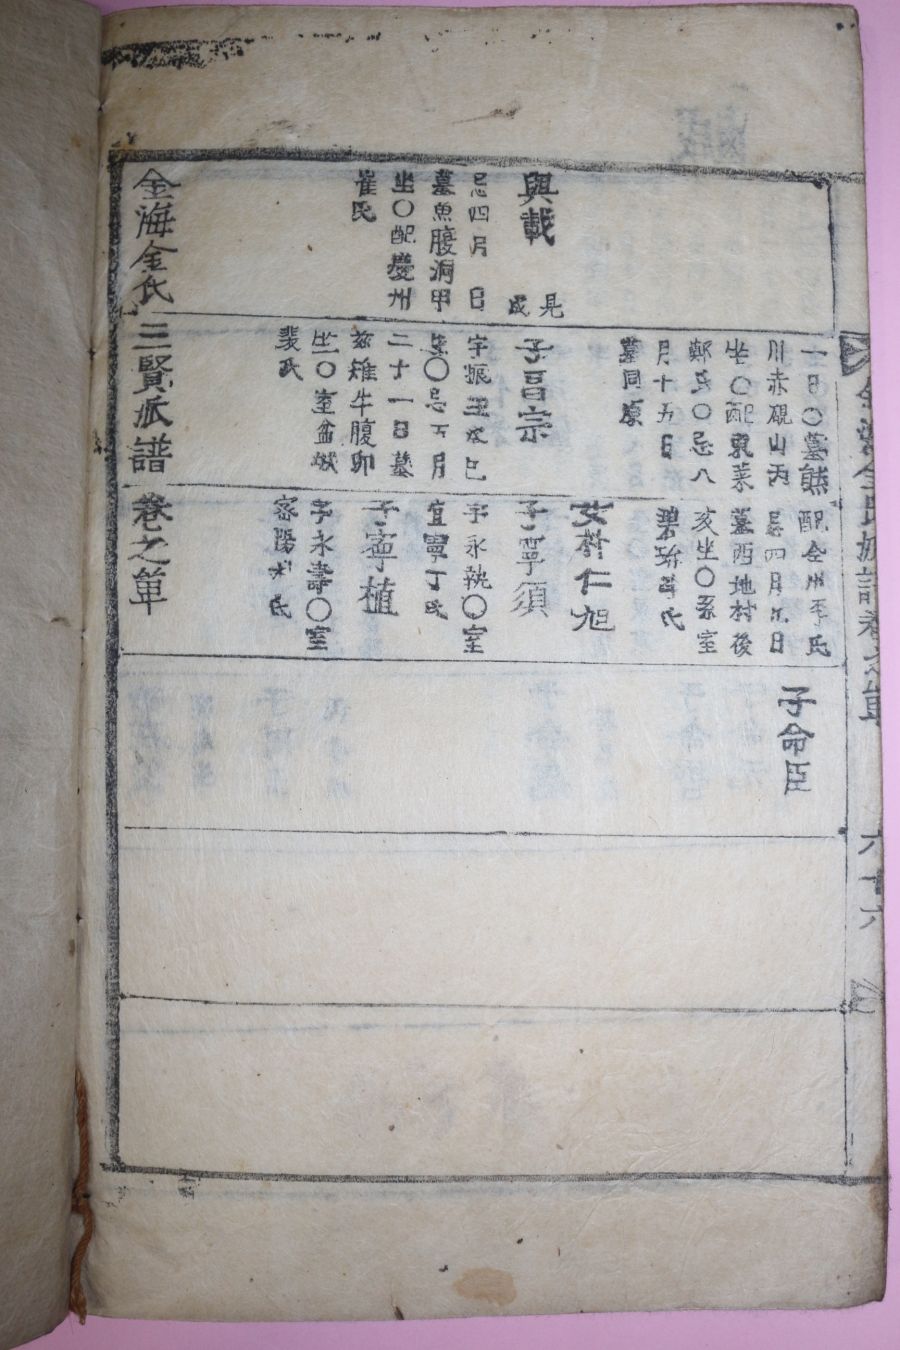 金海金氏族譜卷之單
六十六
興載
見
忌四月 日
墓魚腹洞甲
坐〇配慶州
崔氏
一日〇墓熊
川赤硯山丙
坐〇配東萊
鄭氏〇忌八
月十五日
墓同原
子昌宗
字振玉
生〇忌五月
二十一日墓
玆雉牛腹卯
坐〇室盆城
裴氏
配金州李氏
忌四月九日
墓西地村後
亥坐〇系室
碧珍李氏
女朴仁旭
子寧須
字永執〇室
宜寧丁氏
子寧植
字永壽〇室
密陽朴氏
子命臣
金海金氏三賢派譜 卷之單